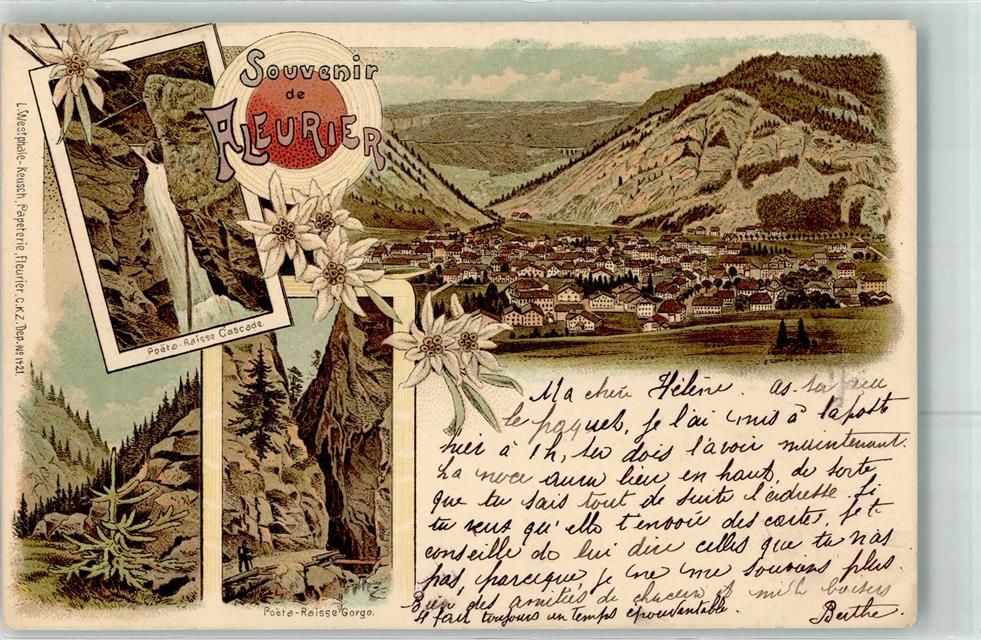 Souvenir
de
FLEURIER
L. Westphale-Keusch, Papeterie, Fleurier. C.K.Z. Dep. No 1421.
Poëta-Raisse Cascade.
Poëta-Raisse Gorge.
Ma cheri Hélène. as-tu eu
le paquet, je l'ai mis à la poste
hier à 1h, tu dois l'avoir maintenant.
La noce aura lieu en haut, de sorte
que tu sais tout de suite l'adresse. Si
tu veux qu'elle t'envoie des cartes, je te
conseille de lui dire celles que tu n'as
pas, parceque je ne me souviens plus.
Bien des amitiés de chacun et mille baisers
Il fait toujours un temps épouvantable. Berthe.